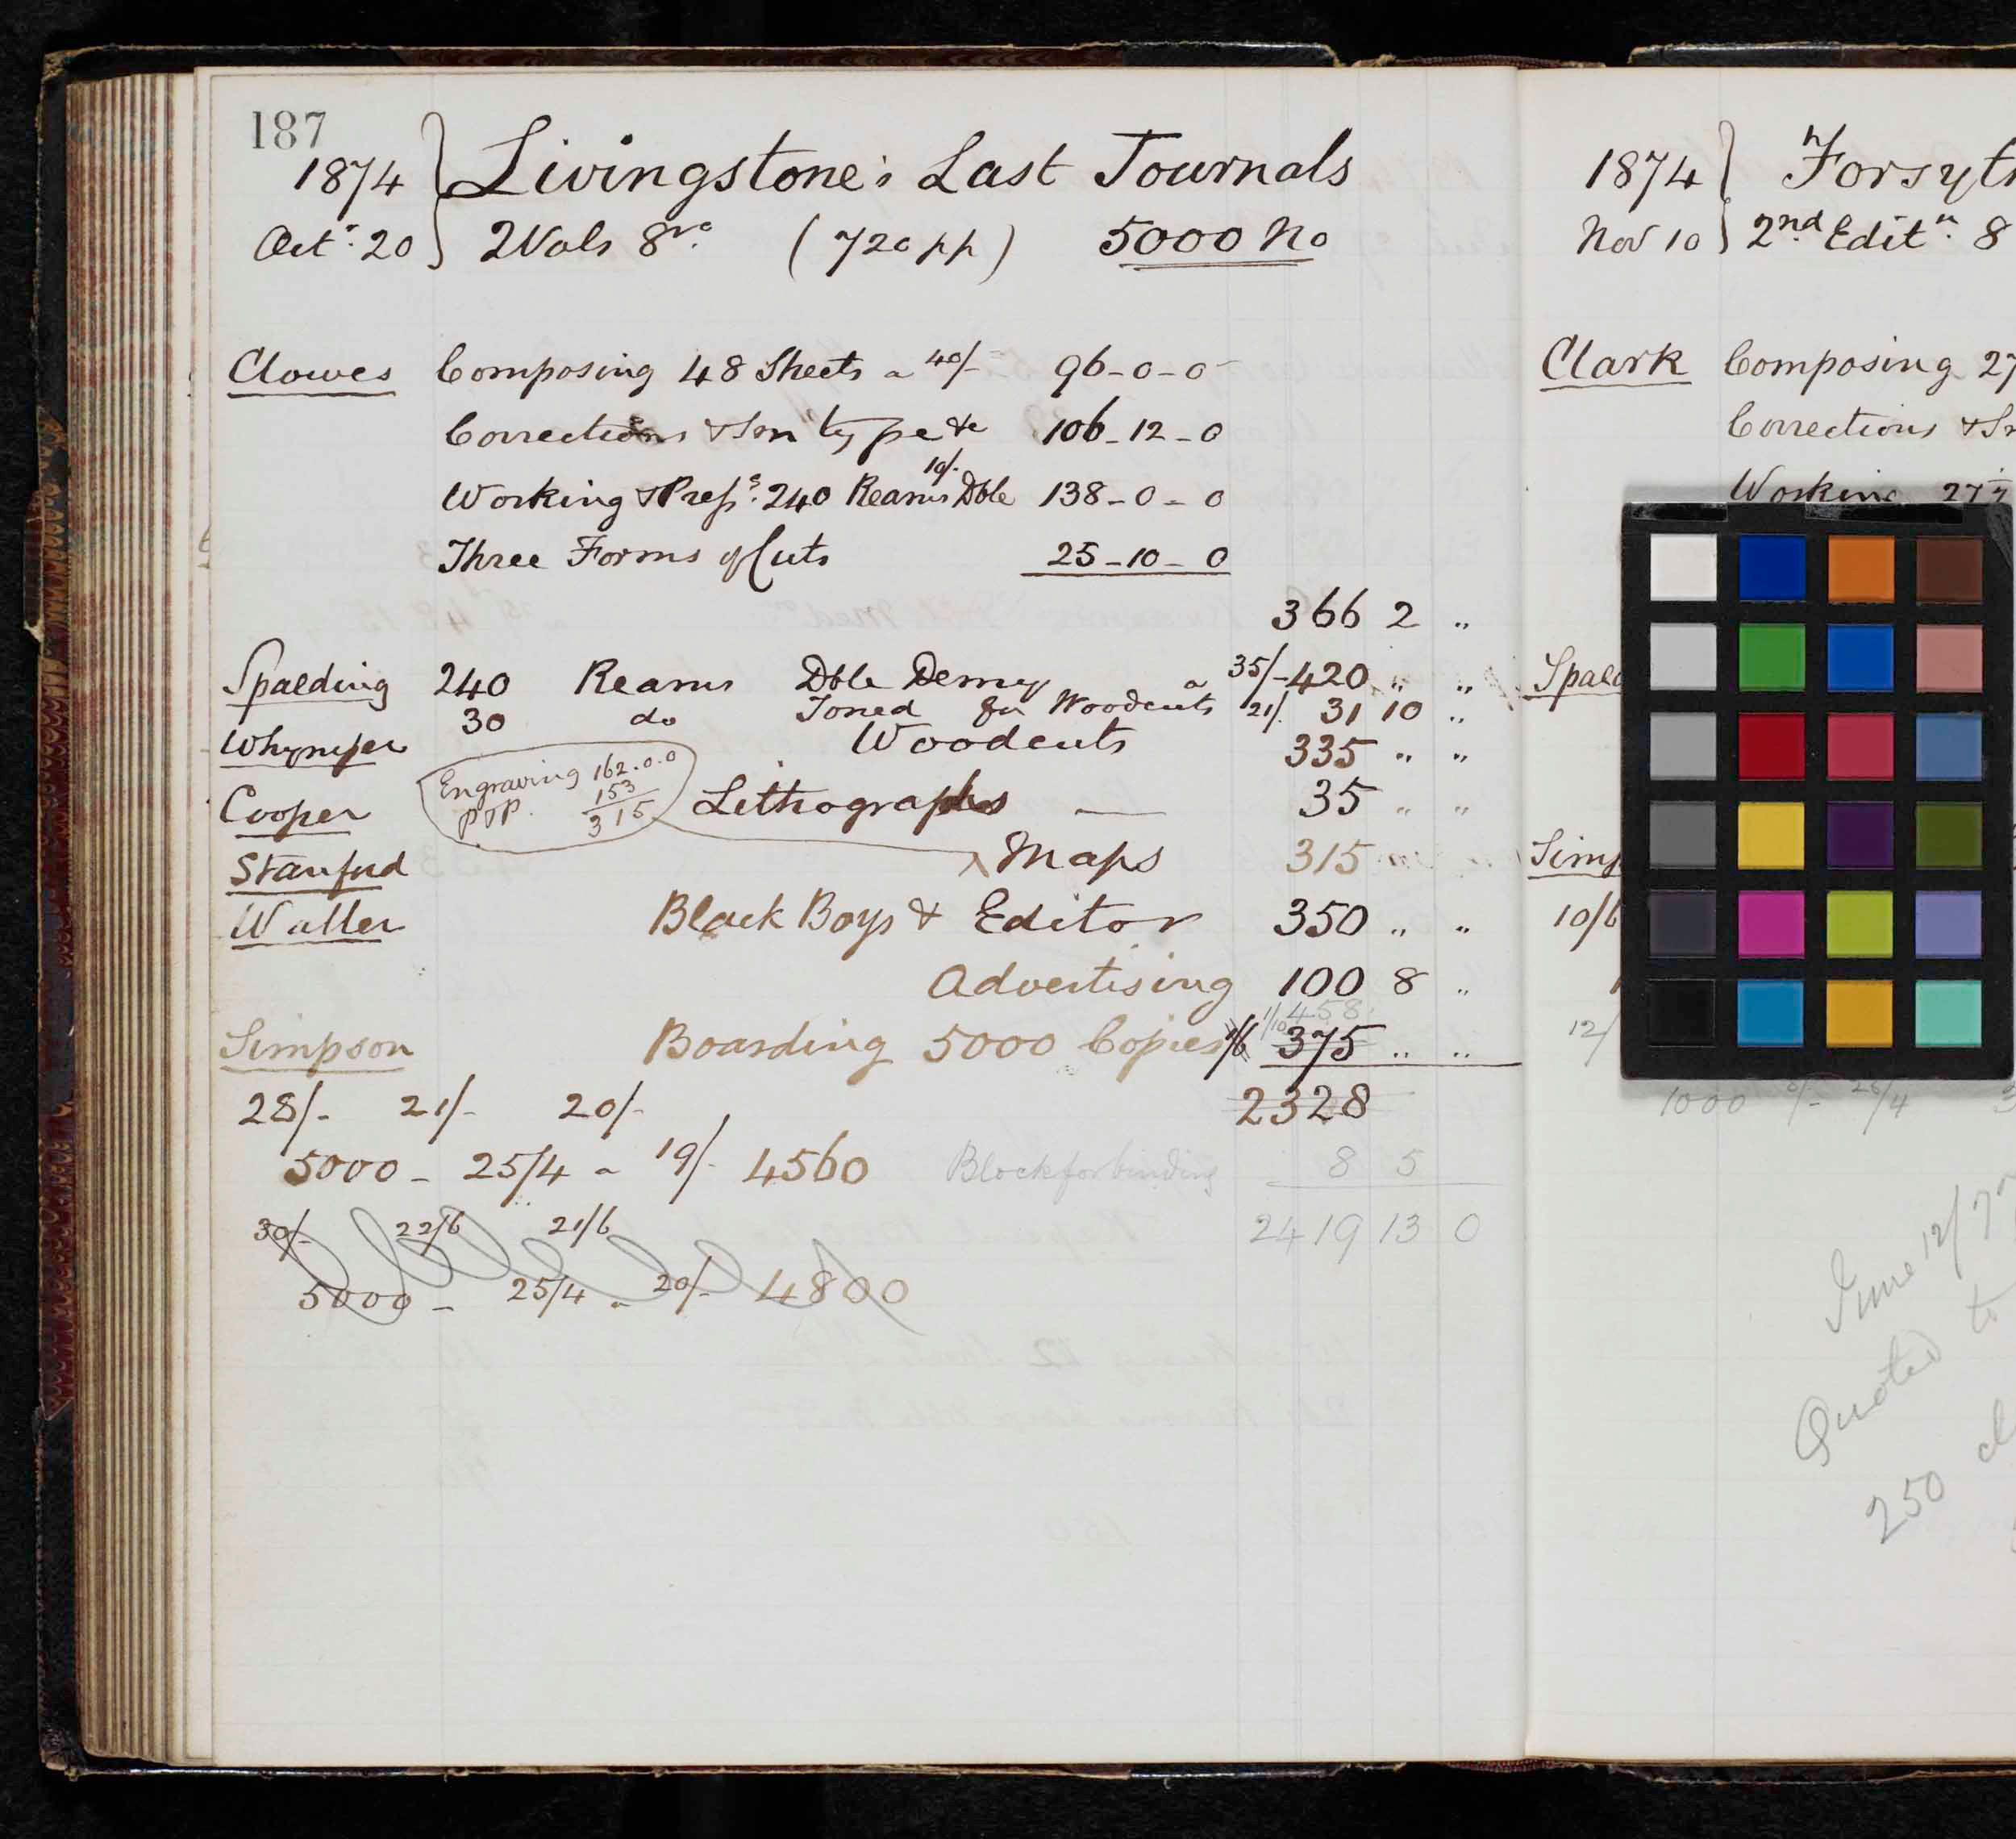 187
1874 Livingstone's Last Journals
Oct. 20 2 Vols 8vo. (720 pp) 5000 No
Clowes Composing 48 Sheets a 40/- 96-0-0
Corrections & Sm type &c 106-12-0
Working & Press. 240 Reams Dble 10/- 138-0-0
Three Forms of Cuts 25-10-0
366 2 "
Spalding 240 Reams Dble Demy a 35/- 420 " "
30 do Toned for Woodcuts 21/. 31 10 "
Whymper Woodcuts 335 " "
Engraving 162.0.0
P & P. 153
315
Cooper Lithographs — 35 " "
Stanford Maps 315
Waller Black Boys & Editor 350 " "
Advertising 100 8 "
1/10 458
Simpson Boarding 5000 Copies 1/6 375 " "
28/- 21/- 20/- 2328
5000 - 25/4 - 19/- 4560 Block for binding 8 5
30/- 22/6 21/6 2419 13 0
5000 - 25/4 - 20/- 4800
1874
Nov 10 2nd Editn. 8
Clark Composing 27
Corrections &
Working 27
10/6
12/
1000 26/4
June 12/7
Quoted to
250